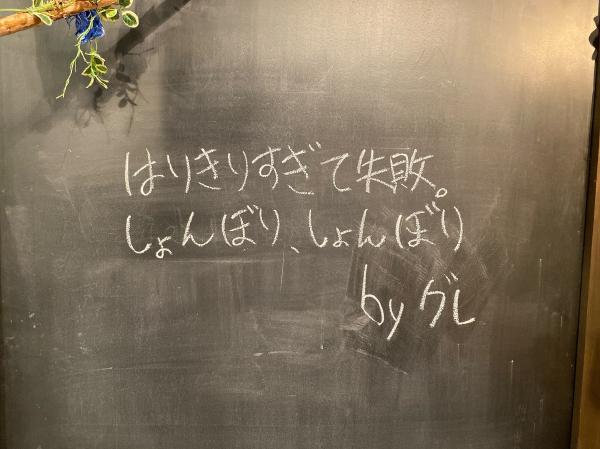 はりきりすぎて失敗。
しょんぼり、しょんぼり
by グレ